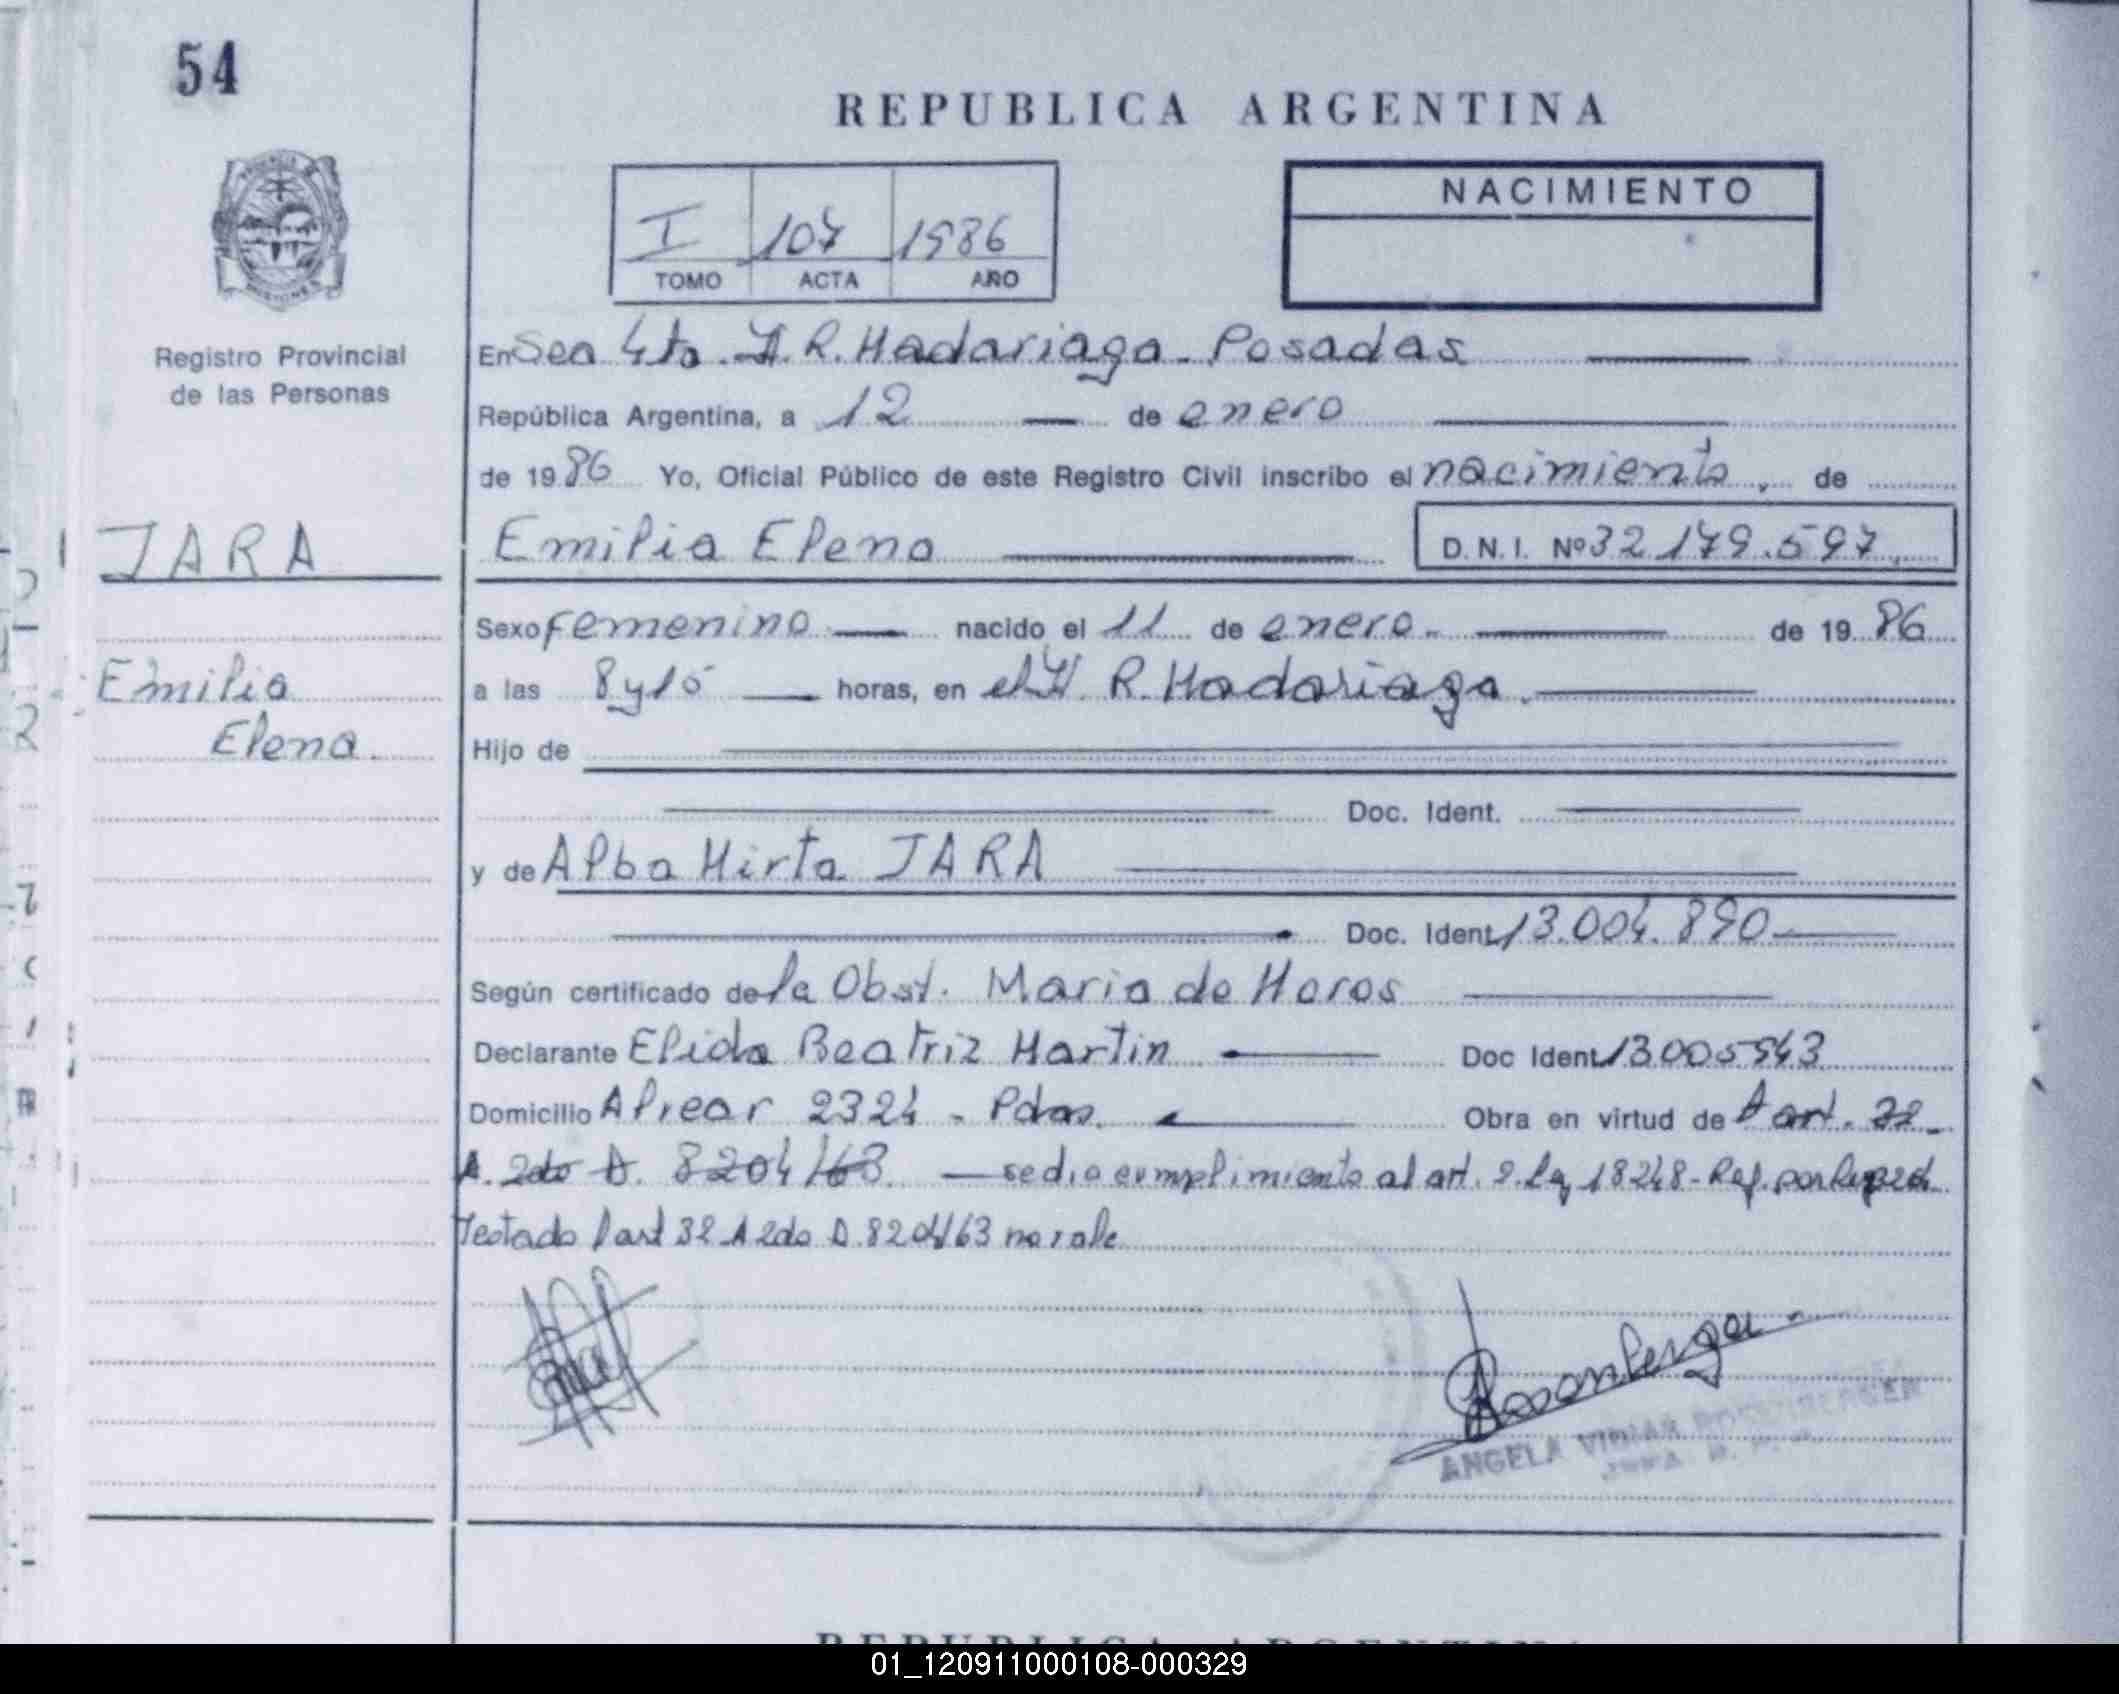 54
REPUBLICA ARGENTINA
NACIMIENTO
I 107 1986
TOMO ACTA AÑO
Registro Provincial
de las Personas
En Sec 4ta H. R. Madariaga - Posadas
República Argentina, a 12 de enero
de 1986 Yo, Oficial Público de este Registro Civil inscribo el nacimiento, de
JARA
Emilia Elena
D. N. I. Nº 32.179.597
Sexo femenino nacido el 11 de enero de 1986
Emilia
Elena
a las 8 y 15 horas, en el H. R. Madariaga
Hijo de
Doc. Ident.
y de Alba Mirta JARA
Doc. Ident. 13.004.890
Según certificado de la Obst. Maria de
Declarante Elida Beatriz Martin Doc Ident 13.005.543
Domicilio Alvear 2324 - Pdas. Obra en virtud de art. 32
A. 2do D. 8204/63 se dio cumplimiento al art. 2 Ley 18248 - Ref. por Ley
Testado art 32 A 2do D. 8204/63 no vale
Rosenberger
ANGELA VIVIAN ROSENBERGER
REPUBLICA ARGENTINA
01_120911000108-000329